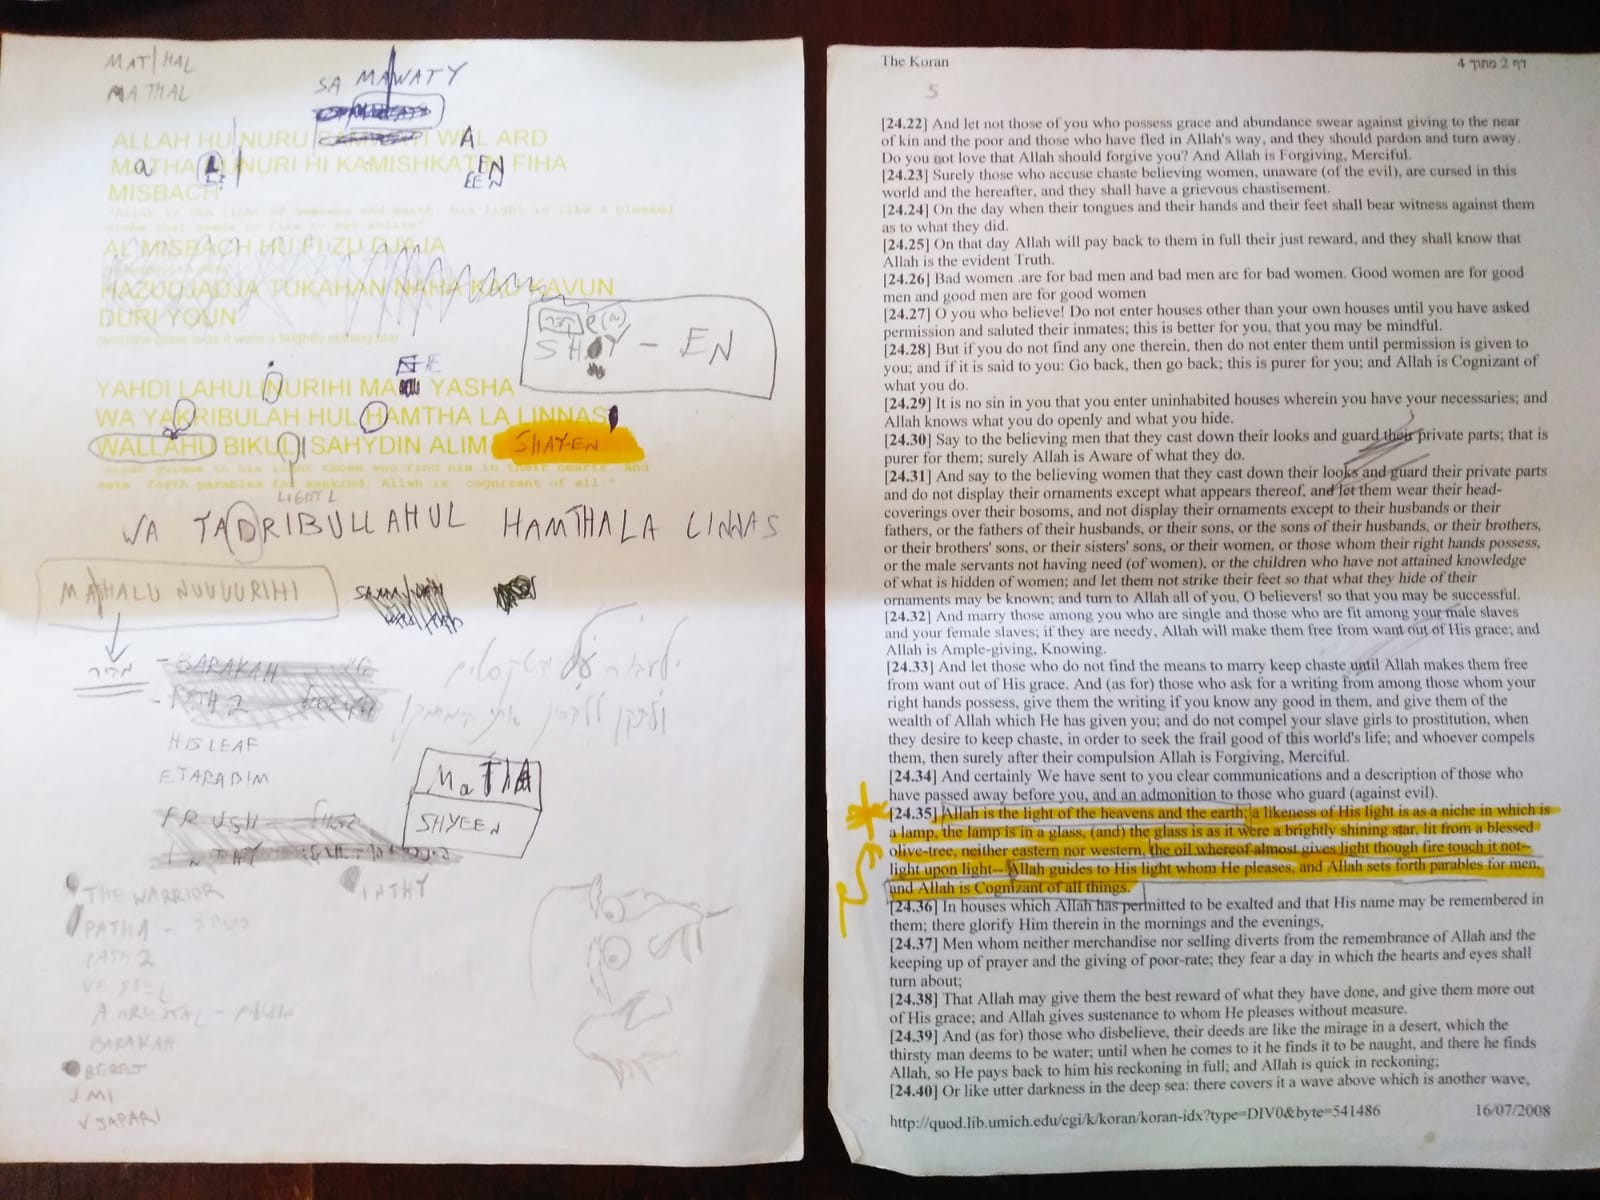 MAT|HAL
MATHAL
SA MAWATY
ALLAH HU NURU WAL ARD
A
MATHA NURI HI KAMISHKATE FIHA
a
EN
EEN
MISBACH
"Allah is the light of heavens and earth, his light is like a blessed
AL MISBACH HU FI ZU DJAJA
HAZUDJADJA TUKAHAN NAHA KAU KAVUN
DURI YOUN
(and) the glass is as it were a brightly shining star
SHY - EN
YAHDI LAHUL NURIHI MA YASHA
WA YAKRIBULAH HUL HAMTHA LA LINNAS
WALLAHU BIKULI SAHYDIN ALIM SHAYEN
"Allah guides to his light those who find him in their hearts, and
sets forth parables for mankind, Allah is cognizant of all "
LIGHT L
WA TADRIBULLAHUL HAMTHALA LINNAS
MATHALU NUUUURIHI
מהיר
- BARAKAH
- PATH 2
HIS LEAF
ETARABIM
MaTHA
SHYEEN
FRUSH
INTHY
INTHY
THE WARRIOR
PATHA -
PATH 2
VESSEL
BARAKAH
BEREJ
√ MI
√ JAPARI
The Koran
דף 2 מתוך 4
5
[24.22] And let not those of you who possess grace and abundance swear against giving to the near
of kin and the poor and those who have fled in Allah's way, and they should pardon and turn away.
Do you not love that Allah should forgive you? And Allah is Forgiving, Merciful.
[24.23] Surely those who accuse chaste believing women, unaware (of the evil), are cursed in this
world and the hereafter, and they shall have a grievous chastisement.
[24.24] On the day when their tongues and their hands and their feet shall bear witness against them
as to what they did.
[24.25] On that day Allah will pay back to them in full their just reward, and they shall know that
Allah is the evident Truth.
[24.26] Bad women .are for bad men and bad men are for bad women. Good women are for good
men and good men are for good women
[24.27] O you who believe! Do not enter houses other than your own houses until you have asked
permission and saluted their inmates; this is better for you, that you may be mindful.
[24.28] But if you do not find any one therein, then do not enter them until permission is given to
you; and if it is said to you: Go back, then go back; this is purer for you; and Allah is Cognizant of
what you do.
[24.29] It is no sin in you that you enter uninhabited houses wherein you have your necessaries; and
Allah knows what you do openly and what you hide.
[24.30] Say to the believing men that they cast down their looks and guard their private parts; that is
purer for them; surely Allah is Aware of what they do.
[24.31] And say to the believing women that they cast down their looks and guard their private parts
and do not display their ornaments except what appears thereof, and let them wear their head-
coverings over their bosoms, and not display their ornaments except to their husbands or their
fathers, or the fathers of their husbands, or their sons, or the sons of their husbands, or their brothers,
or their brothers' sons, or their sisters' sons, or their women, or those whom their right hands possess,
or the male servants not having need (of women), or the children who have not attained knowledge
of what is hidden of women; and let them not strike their feet so that what they hide of their
ornaments may be known; and turn to Allah all of you, O believers! so that you may be successful.
[24.32] And marry those among you who are single and those who are fit among your male slaves
and your female slaves; if they are needy, Allah will make them free from want out of His grace; and
Allah is Ample-giving, Knowing.
[24.33] And let those who do not find the means to marry keep chaste until Allah makes them free
from want out of His grace. And (as for) those who ask for a writing from among those whom your
right hands possess, give them the writing if you know any good in them, and give them of the
wealth of Allah which He has given you; and do not compel your slave girls to prostitution, when
they desire to keep chaste, in order to seek the frail good of this world's life; and whoever compels
them, then surely after their compulsion Allah is Forgiving, Merciful.
[24.34] And certainly We have sent to you clear communications and a description of those who
have passed away before you, and an admonition to those who guard (against evil).
[24.35] Allah is the light of the heavens and the earth; a likeness of His light is as a niche in which is
a lamp, the lamp is in a glass, (and) the glass is as it were a brightly shining star, lit from a blessed
olive-tree, neither eastern nor western, the oil whereof almost gives light though fire touch it not--
light upon light-- Allah guides to His light whom He pleases, and Allah sets forth parables for men,
and Allah is Cognizant of all things.
[24.36] In houses which Allah has permitted to be exalted and that His name may be remembered in
them; there glorify Him therein in the mornings and the evenings,
[24.37] Men whom neither merchandise nor selling diverts from the remembrance of Allah and the
keeping up of prayer and the giving of poor-rate; they fear a day in which the hearts and eyes shall
turn about;
[24.38] That Allah may give them the best reward of what they have done, and give them more out
of His grace; and Allah gives sustenance to whom He pleases without measure.
[24.39] And (as for) those who disbelieve, their deeds are like the mirage in a desert, which the
thirsty man deems to be water; until when he comes to it he finds it to be naught, and there he finds
Allah, so He pays back to him his reckoning in full; and Allah is quick in reckoning;
[24.40] Or like utter darkness in the deep sea: there covers it a wave above which is another wave,
http://quod.lib.umich.edu/cgi/k/koran/koran-idx?type=DIV0&byte=541486
16/07/2008